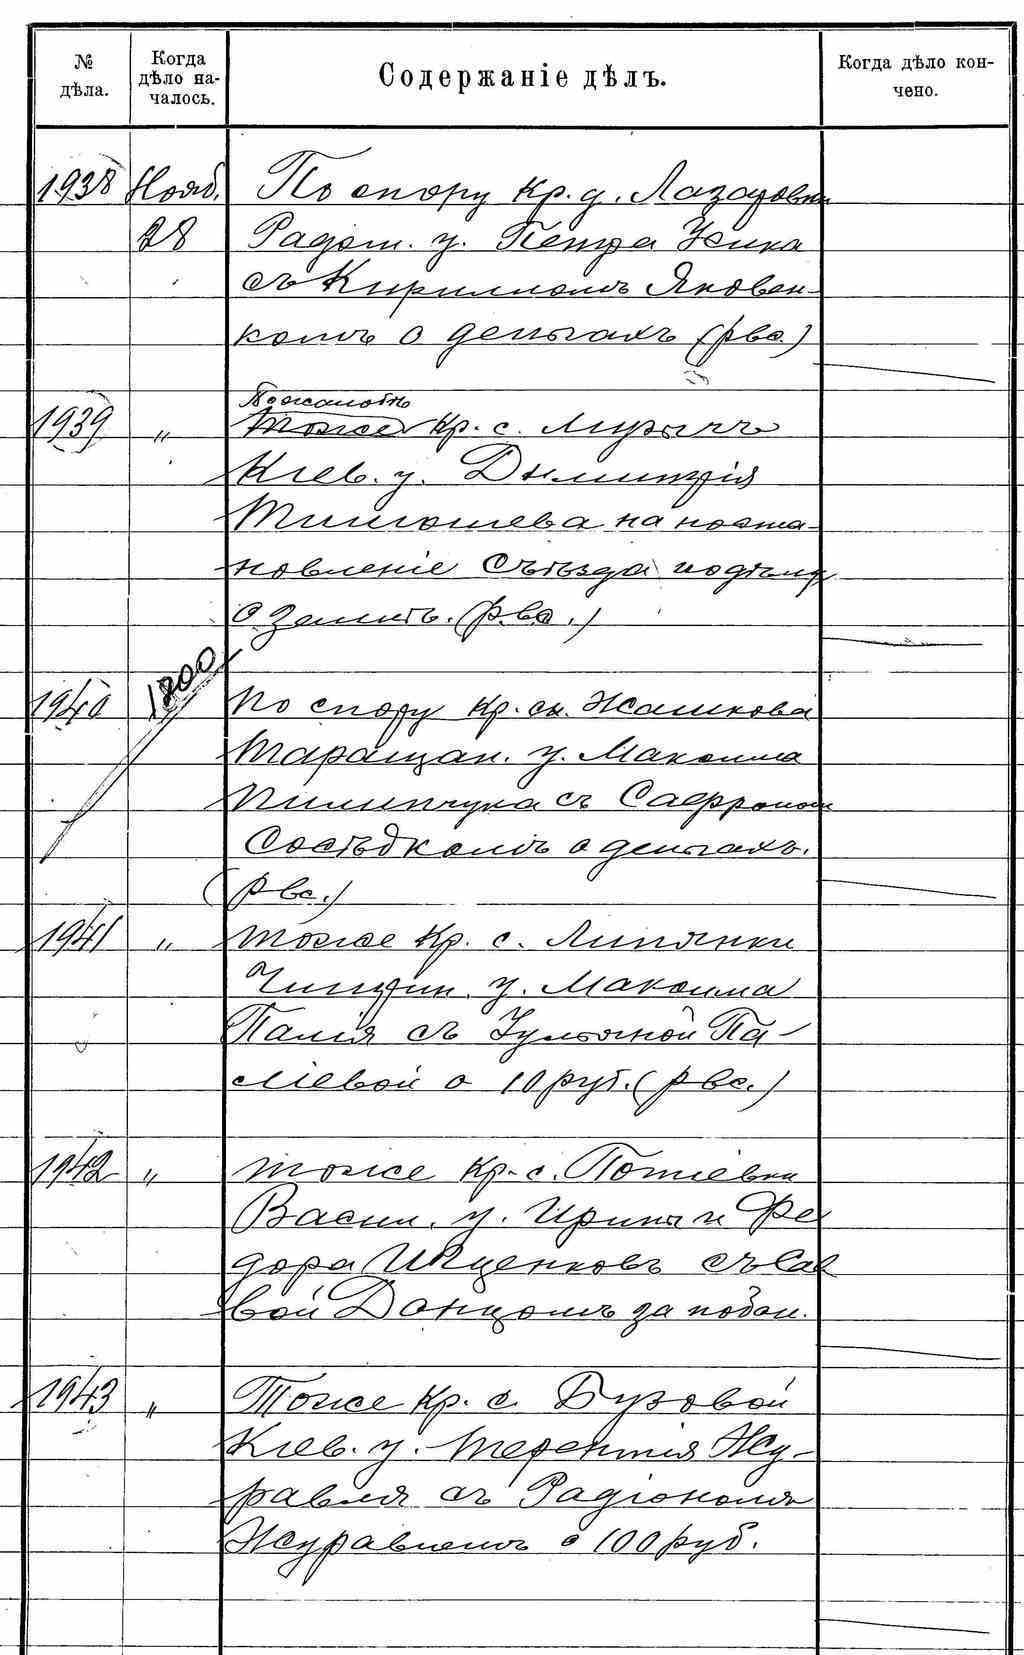 № дѣла.
Когда дѣло на-
чалось.
Содержаніе дѣлъ.
Когда дѣло кон-
чено.
1938 Нояб. По спору кр. д. Лазаровки
28 Радом. у. Петра
съ Кирилломъ Яковен-
комъ о деньгахъ (рвс.)
Пожалобѣ
1939 " Тоже кр. с.
Кіев. у. Димитрія
Тимошева на поста-
новленіе Съѣзда подѣлу
о землѣ. (рвс.)
1800
1940 По спору кр. м. Жашкова
Таращан. у. Максима
Пилипчука съ Сафроном
Сосѣдкомъ о деньгахъ.
(рвс.)
1941 " тоже кр. с. Липянки
Чигирин. у. Максима
Палія съ Ульяной Па-
ліевой о 10 руб. (рвс.)
1942 " тоже кр. с. Потіевки
Васил. у. Ирины и Фе
дора Ищенковъ съ Сав
вой Донцомъ за побои.
1943 " Тоже кр. с. Бузовой
Кіев. у. Терентія Жу-
равля съ Радіономъ
Журавлемъ о 100 руб.